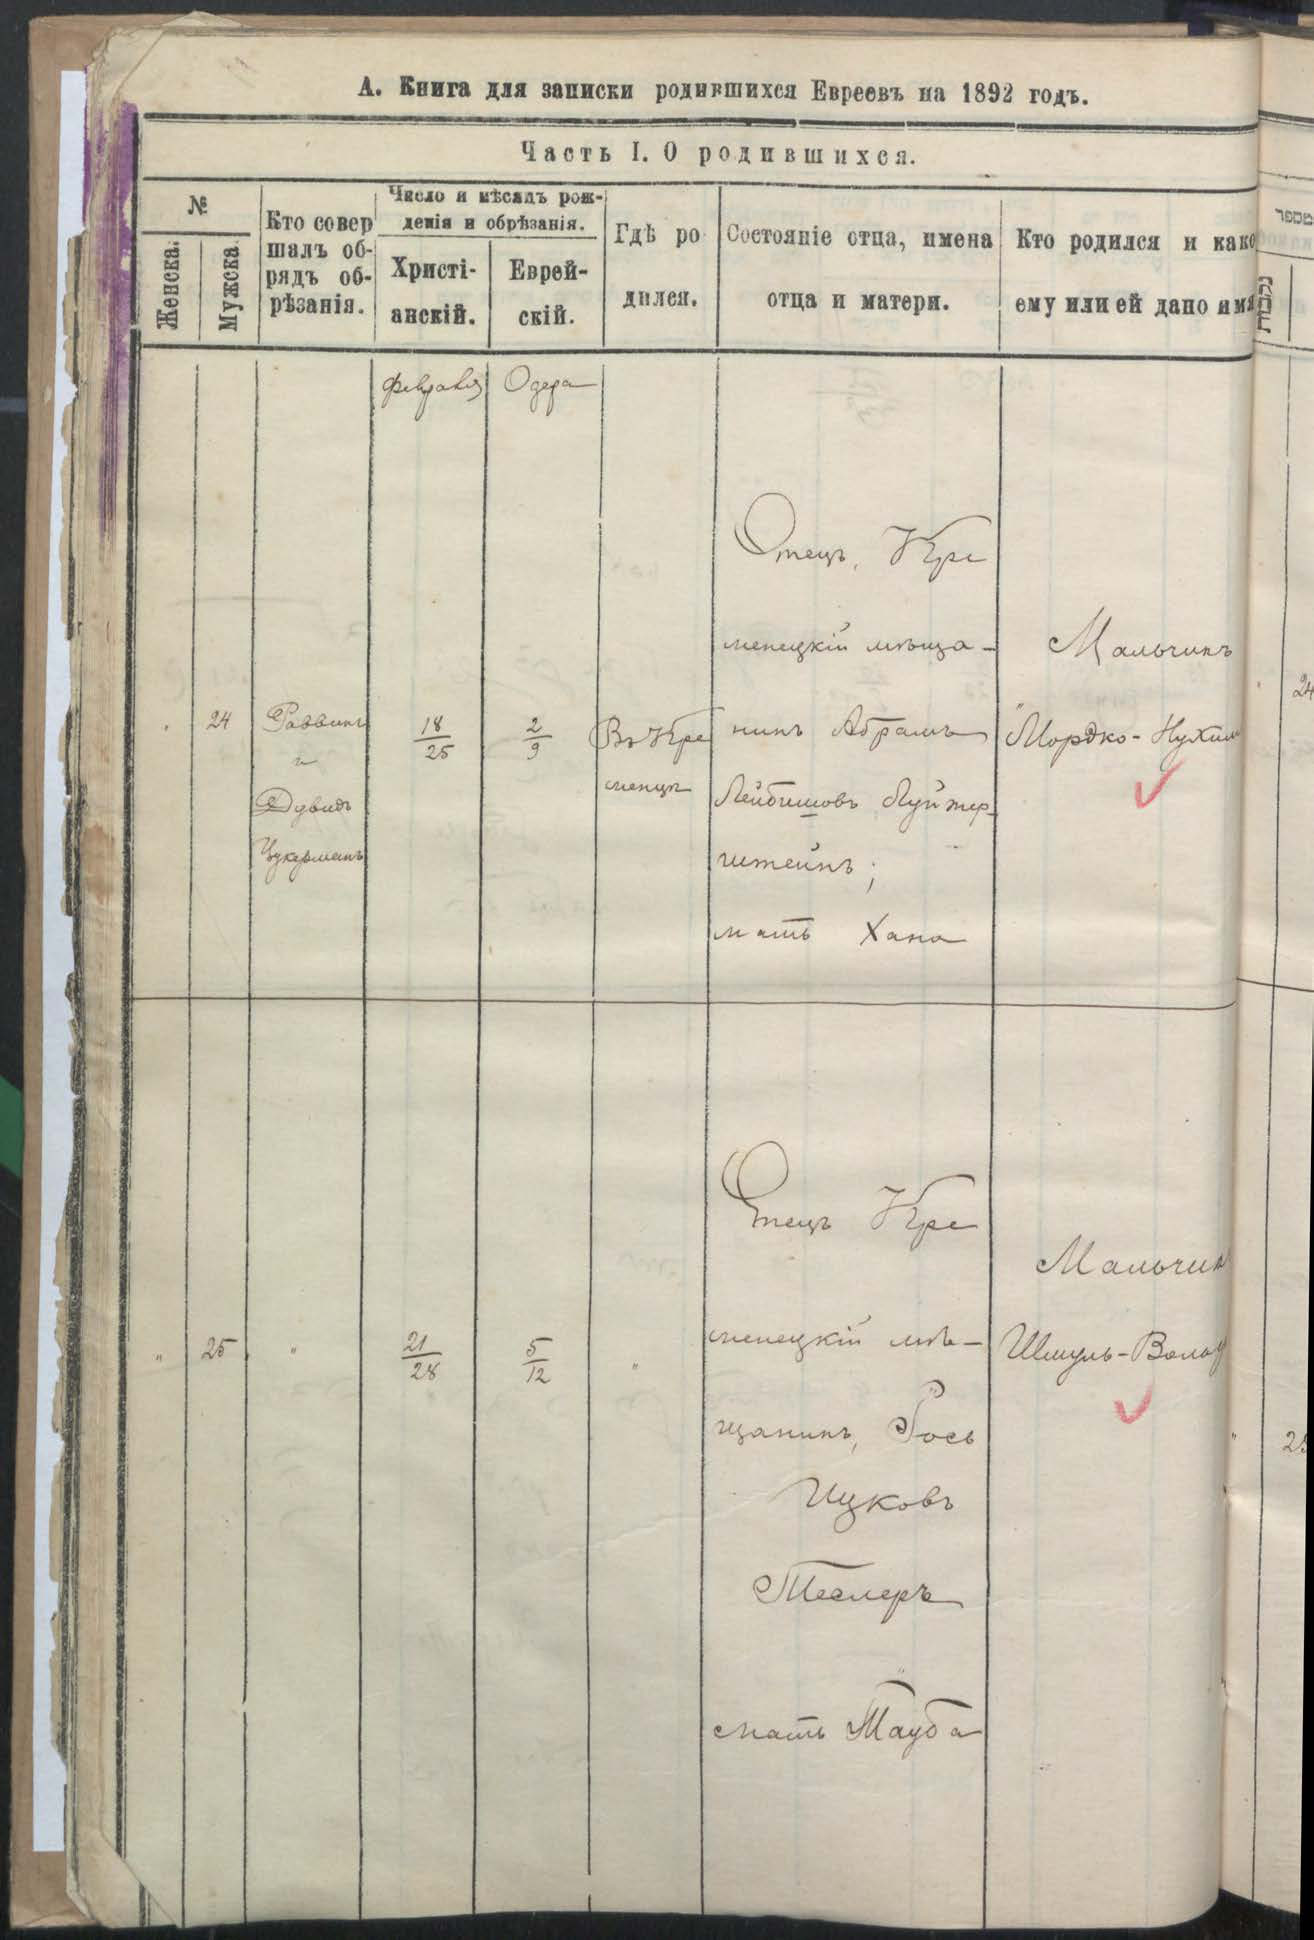 А. Книга для записки родившихся Евреевъ на 1892 годъ.
Часть I. О родившихся.
№
Женска.
Мужска
Кто совер
шалъ об-
рядъ об-
рѣзанія.
Число и мѣсяцъ рож-
денія и обрѣзанія.
Христі-
анскій.
Еврей-
скій.
Гдѣ ро
дился.
Состояніе отца, имена
отца и матери.
Кто родился и како
ему или ей дано имя
Февраля
Одера
24
Раввинъ
и
Дувидъ
Цукерманъ
18
25
2
9
Въ Кре
менцѣ
Отецъ, Кре
менецкій мѣща-
нинъ Абрамъ
Лейбишовъ
штейнъ;
мать Хана
Мальчикъ
Мордко-Нухимъ
24
25
"
21
28
5
12
"
Отецъ Кре
менецкій мѣ-
щанинъ,
Ицковъ
Теслеръ
мать Тауба
Мальчик
Шмуль-Вольф